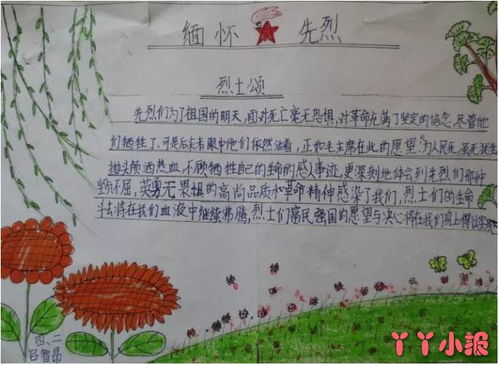 缅怀 先烈
烈士颂
先烈们为了祖国的明天,面对死亡毫无恐惧,对革命充满了坚定的信念,尽管他
们牺牲了,可是后来者眼中他们依然活着,正如毛主席在此的愿望"为人民死,虽死犹生
抛头颅洒热血,不顾牺牲自己的生命的感人事迹,更深刻地体会到先烈们那种
不屈,英勇无畏惧的高尚品质和革命精神感染了我们,烈士们的生命
斗志将在我们血液中继续沸腾,烈士们富民强国的愿望与决心将在我们身上得
四、二
吕智昂
丫丫小报